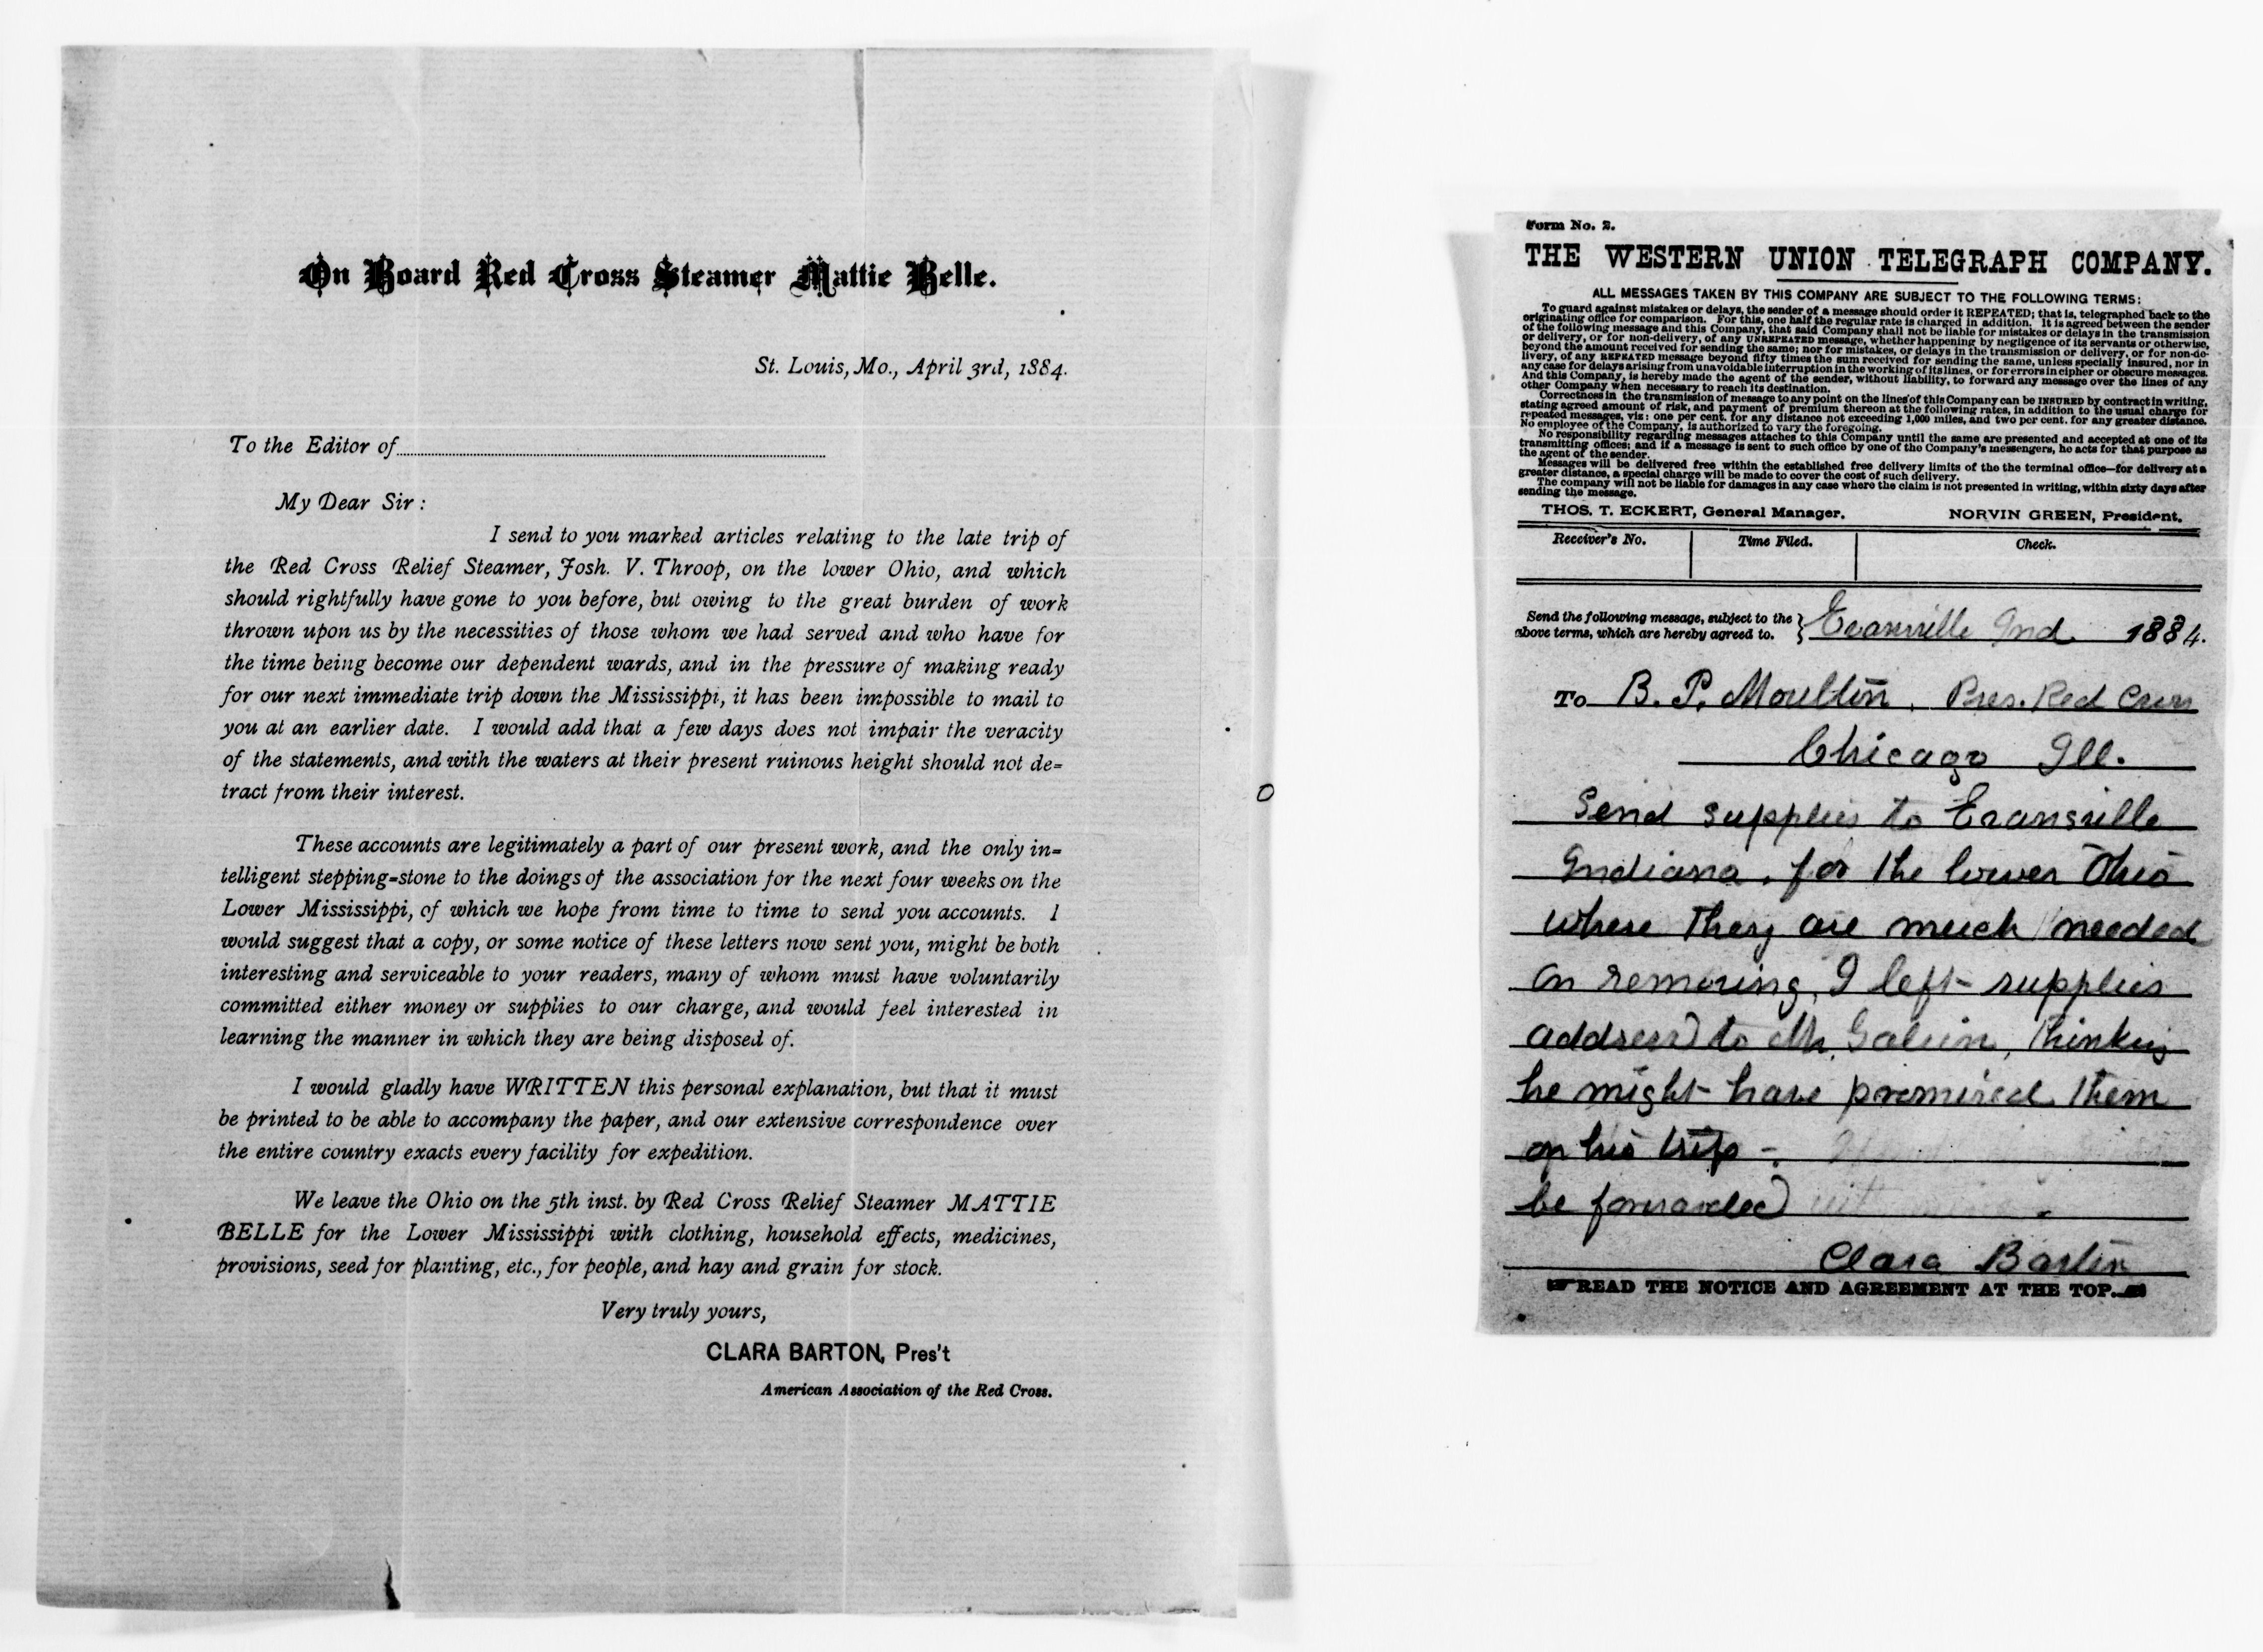 On Board Red Cross Steamer Mattie Belle.
St. Louis, Mo., April 3rd, 1884.
To the Editor of
My Dear Sir :
I send to you marked articles relating to the late trip of
the Red Cross Relief Steamer, Josh. V. Throop, on the lower Ohio, and which
should rightfully have gone to you before, but owing to the great burden of work
thrown upon us by the necessities of those whom we had served and who have for
the time being become our dependent wards, and in the pressure of making ready
for our next immediate trip down the Mississippi, it has been impossible to mail to
you at an earlier date. I would add that a few days does not impair the veracity
of the statements, and with the waters at their present ruinous height should not de=
tract from their interest.
These accounts are legitimately a part of our present work, and the only in=
telligent stepping=stone to the doings of the association for the next four weeks on the
Lower Mississippi, of which we hope from time to time to send you accounts. I
would suggest that a copy, or some notice of these letters now sent you, might be both
interesting and serviceable to your readers, many of whom must have voluntarily
committed either money or supplies to our charge, and would feel interested in
learning the manner in which they are being disposed of.
I would gladly have WRITTEN this personal explanation, but that it must
be printed to be able to accompany the paper, and our extensive correspondence over
the entire country exacts every facility for expedition.
We leave the Ohio on the 5th inst. by Red Cross Relief Steamer MATTIE
BELLE for the Lower Mississippi with clothing, household effects, medicines,
provisions, seed for planting, etc., for people, and hay and grain for stock.
Very truly yours,
CLARA BARTON, Pres't
American Association of the Red Cross.
Form No. 2.
THE WESTERN UNION TELEGRAPH COMPANY.
ALL MESSAGES TAKEN BY THIS COMPANY ARE SUBJECT TO THE FOLLOWING TERMS:
To guard against mistakes or delays, the sender of a message should order it REPEATED; that is, telegraphed back to the
originating office for comparison. For this, one half the regular rate is charged in addition. It is agreed between the sender
of the following message and this Company, that said Company shall not be liable for mistakes or delays in the transmission
or delivery, or for non-delivery, of any UNREPEATED message, whether happening by negligence of its servants or otherwise,
beyond the amount received for sending the same; nor for mistakes, or delays in the transmission or delivery, or for non-de-
livery, of any REPEATED message beyond fifty times the sum received for sending the same, unless specially insured, nor in
any case for delays arising from unavoidable interruption in the working of its lines, or for errors in cipher or obscure messages.
And this Company, is hereby made the agent of the sender, without liability, to forward any message over the lines of any
other Company when necessary to reach its destination.
Correctness in the transmission of message to any point on the lines of this Company can be INSURED by contract in writing,
stating agreed amount of risk, and payment of premium thereon at the following rates, in addition to the usual charge for
repeated messages, viz: one per cent. for any distance not exceeding 1,000 miles, and two per cent. for any greater distance.
No employee of the Company, is authorized to vary the foregoing.
No responsibility regarding messages attaches to this Company until the same are presented and accepted at one of its
transmitting offices; and if a message is sent to such office by one of the Company's messengers, he acts for that purpose as
the agent of the sender.
Messages will be delivered free within the established free delivery limits of the the terminal office—for delivery at a
greater distance, a special charge will be made to cover the cost of such delivery.
The company will not be liable for damages in any case where the claim is not presented in writing, within sixty days after
sending the message.
THOS. T. ECKERT, General Manager. NORVIN GREEN, President.
Receiver's No. Time Filed. Check.
Send the following message, subject to the
above terms, which are hereby agreed to. } Evansville Ind. 1884.
To B. P. Moulton, Pres. Red Cross
Chicago Ill.
Send supplies to Evansville
Indiana, for the lower Ohio
where they are much needed
on removing, I left supplies
addressed to Mr. Galvin, thinking
he might have promised them
on his trip -
be forwarded
Clara Barton
READ THE NOTICE AND AGREEMENT AT THE TOP.